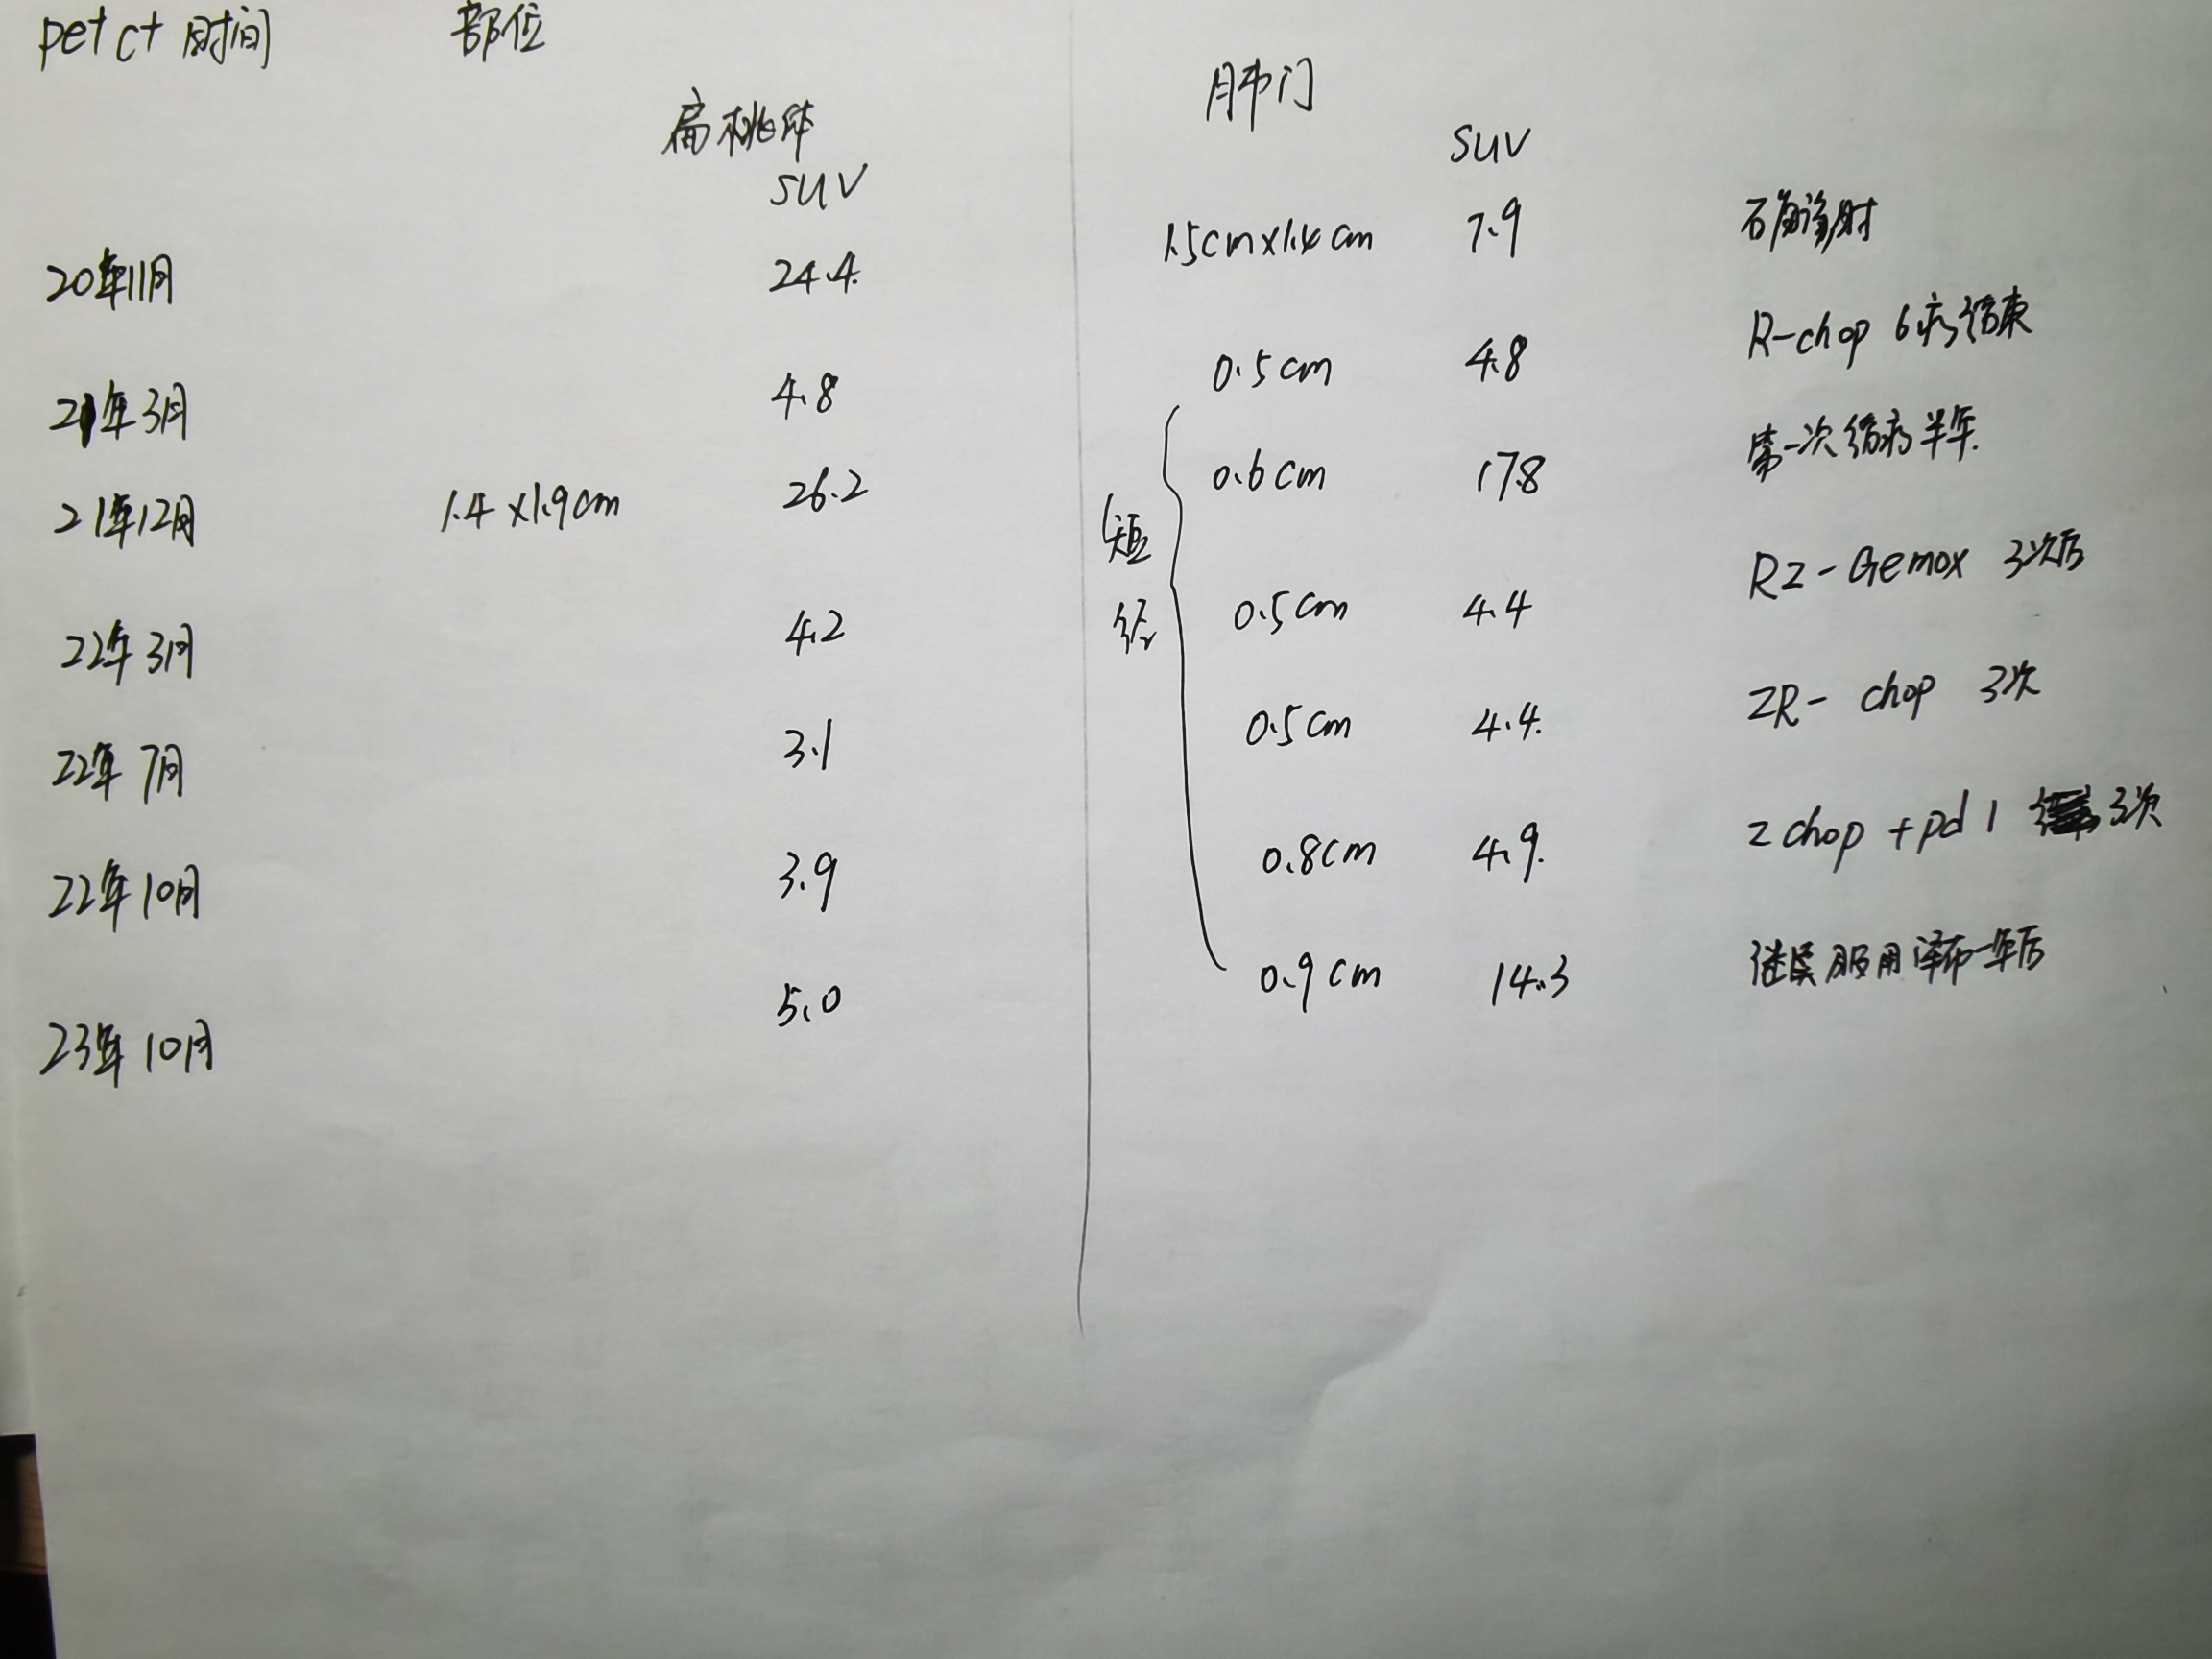 pet ct 时间 部位
扁桃体 肺门
SUV SUV
20年11月 24.4 1.5cm×1.4cm 7.9 确诊时
21年3月 4.8 0.5cm 4.8 R-chop 6疗结束
21年12月 1.4×1.9cm 26.2 0.6cm 17.8 第一次结疗半年.
22年3月 4.2 0.5cm 4.4 RZ-Gemox 3次后
22年7月 3.1 0.5cm 4.4. ZR-chop 3次
22年10月 3.9 0.8cm 4.9. Zchop+pd1 3次
23年10月 5.0 0.9cm 14.3 继续服用泽布一年后
短
径